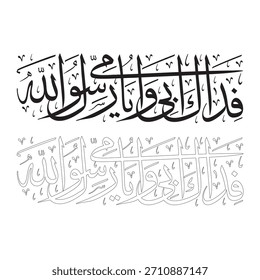 فِدَاكَ أَبِي وَأُمِّي يَا رَسُولَ اللهِ
فداك أبي وأمي يا رسول الله
shutterstock.com · 2710887147